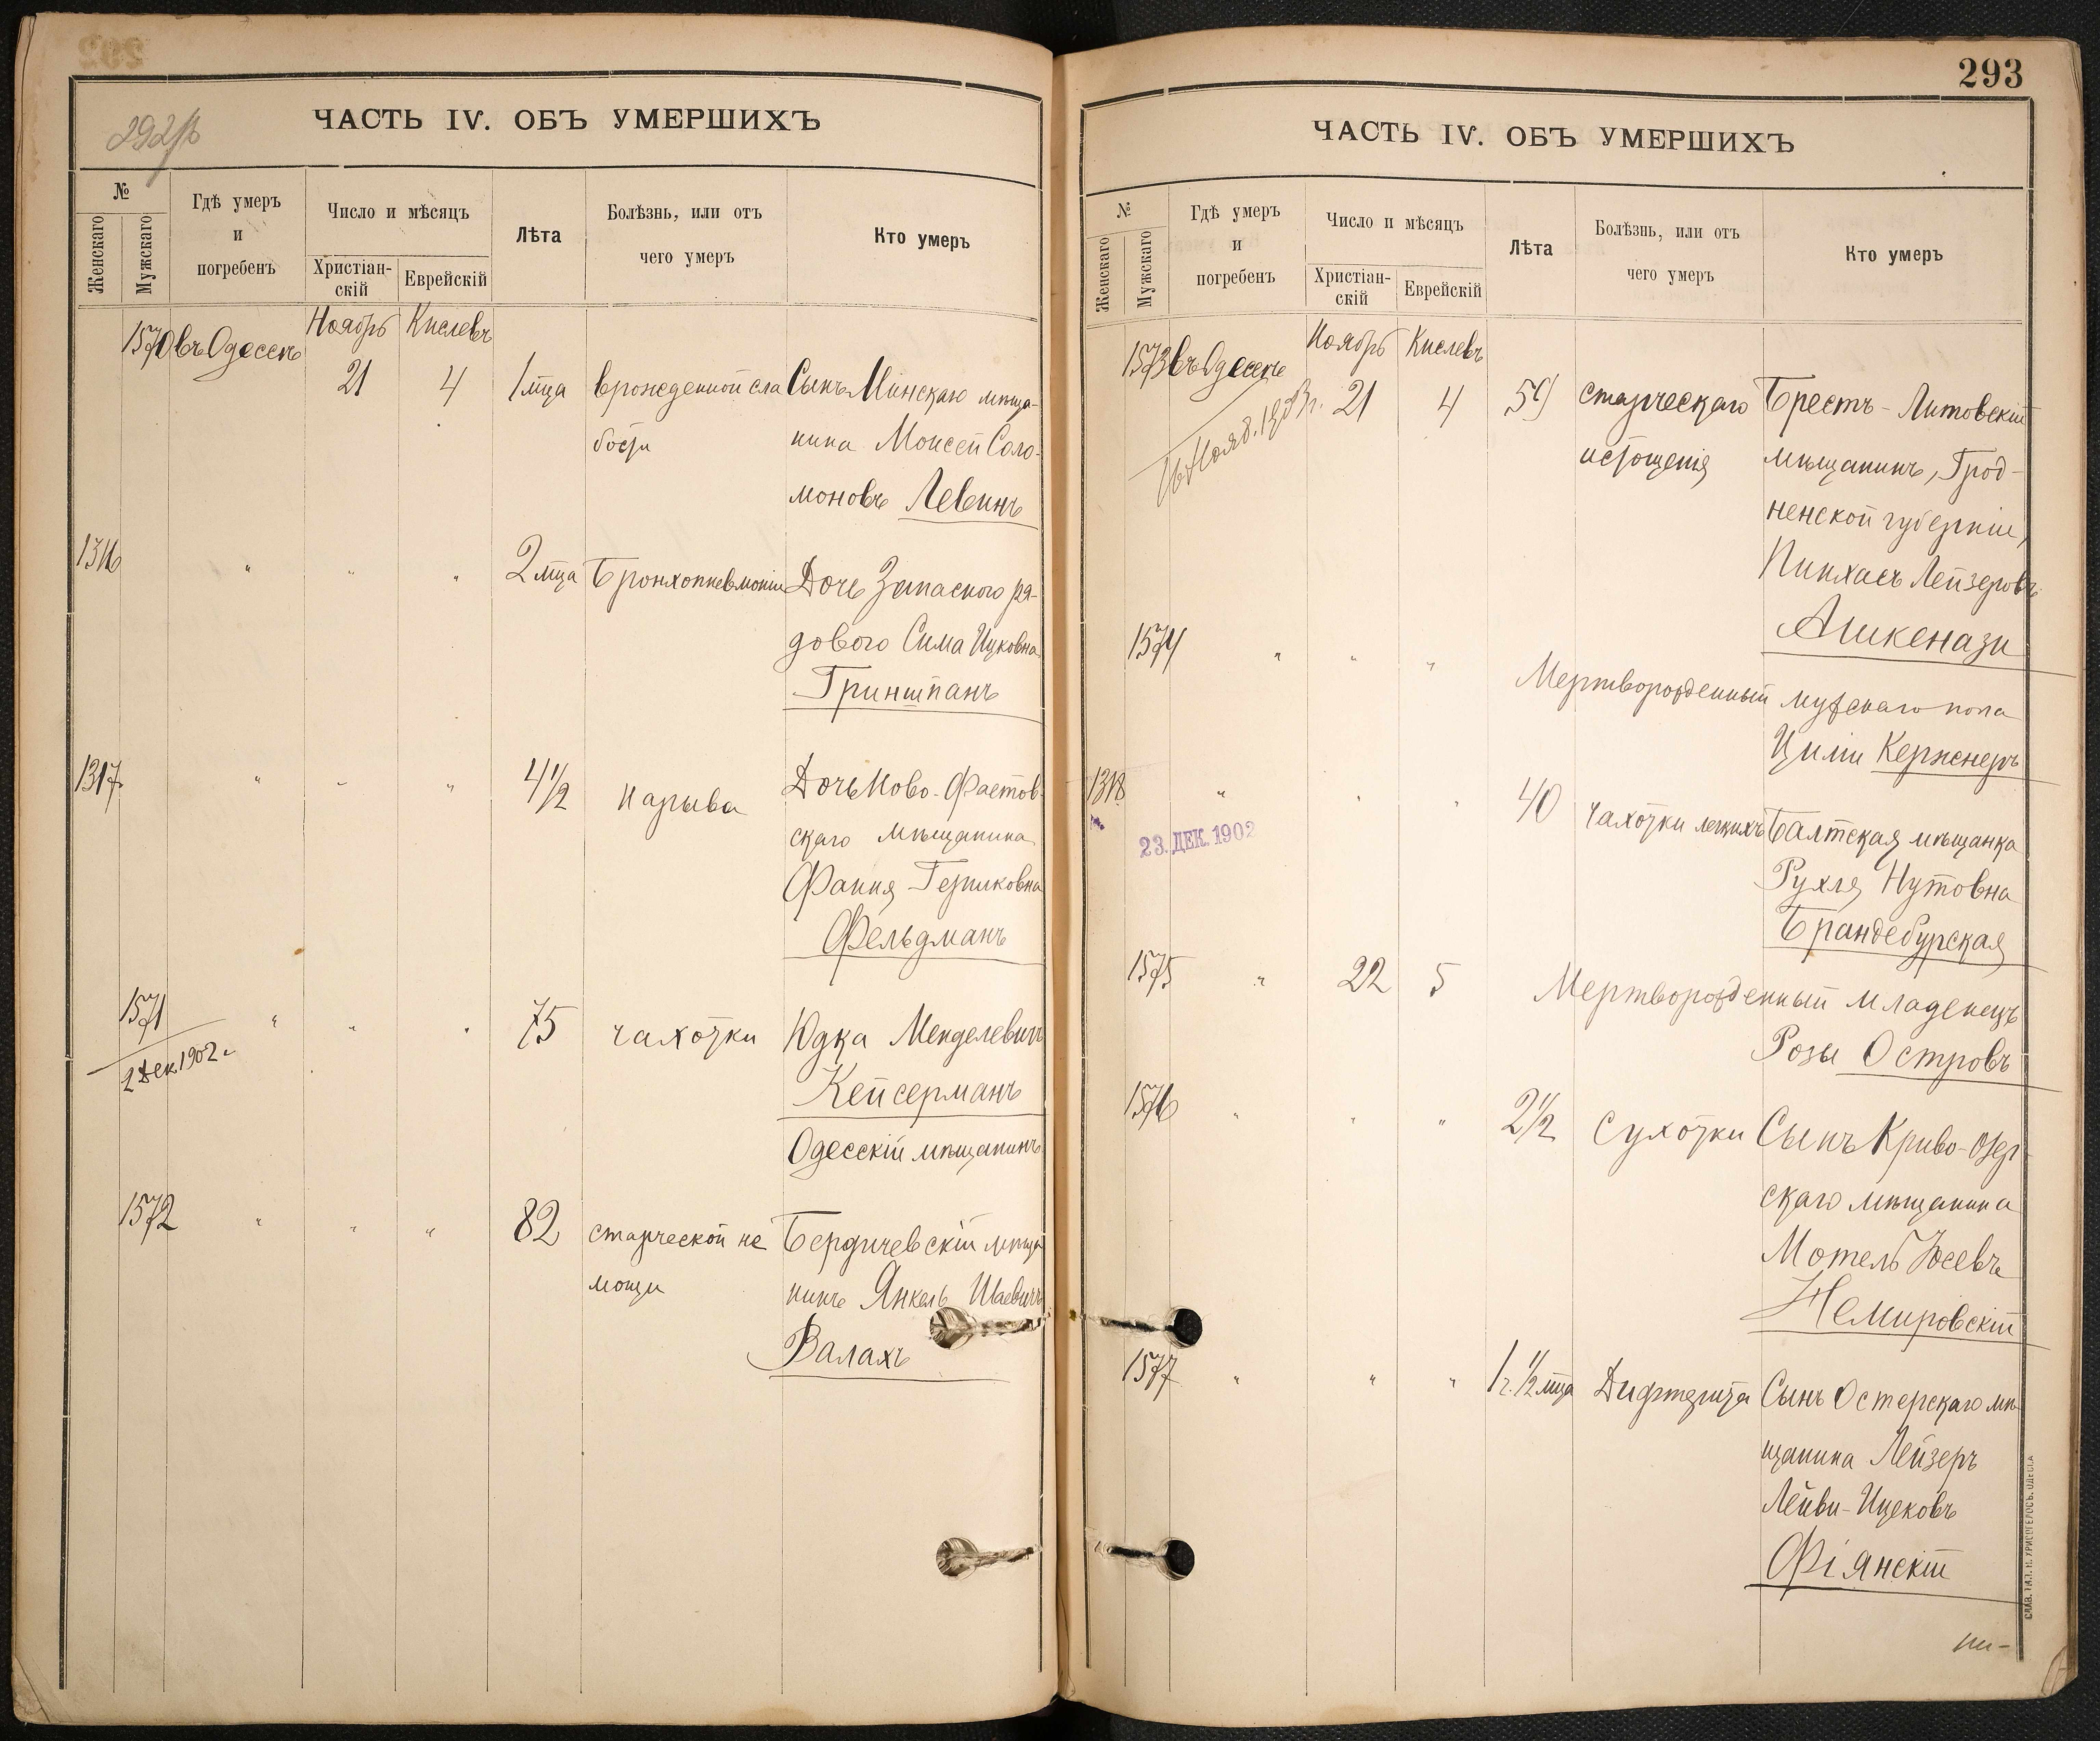 ЧАСТЬ IV. ОБЪ УМЕРШИХЪ
№
Женскаго
Мужскаго
Гдѣ умеръ
и
погребенъ
Число и мѣсяцъ
Христіан-
скій
Еврейскій
Лѣта
Болѣзнь, или отъ
чего умеръ
Кто умеръ
1570 въ Одессѣ Ноябрь Кислевъ
21 4 1 мца врожденной сла Сынъ Минскаго мѣща-
бости нина Моисей Соло-
моновъ Левинъ
1316 " " " 2 мца Бронхопневмоніи Дочь Запаснаго ря-
дового Сима Ицковна
Гриншпанъ
1317 " " " 4 1/2 нарыва Дочь Ново-Фастов-
скаго мѣщанина
Фання Гершковна
Фельдманъ
1571 " " " 75 чахотки Юдка Менделевичъ
2 Дек. 1902 г.
Кейсерманъ
Одесскій мѣщанинъ
1572 " " " 82 старческой не Бердичевскій мѣща
мощи нинъ Янкель Шаевичъ
Валахъ
293
ЧАСТЬ IV. ОБЪ УМЕРШИХЪ
№
Женскаго
Мужскаго
Гдѣ умеръ
и
погребенъ
Число и мѣсяцъ
Христіан-
скій
Еврейскій
Лѣта
Болѣзнь, или отъ
чего умеръ
Кто умеръ
1573 въ Одессѣ Ноябрь Кислевъ
21 4 59 старческаго Брестъ-Литовскій
истощенія мѣщанинъ, Грод-
ненской губерніи,
Пинхасъ Лейзеровъ
Ашкенази
1574 " " "
Мертворожденный мужскаго пола
Цили Кержнеръ
1318 " " " 40 чахотки легкихъ Балтская мѣщанка
23. ДЕК. 1902
Рухля Нутовна
Брандебурская
1575 " 22 5 Мертворожденный младенецъ
Розы Островъ
1576 " " " 2 1/2 Сухотки Сынъ Криво-Озер-
скаго мѣщанина
Мотель Іосевъ
Немировскій
1577 " " " 1 г. 1/2 мца Дифтерита Сынъ Остерскаго мѣ
щанина Лейзеръ
Лейви-Ицековъ
Фіянскій
СЛАВ. ТИП. Н. ХРИСОГЕЛОСЪ. ОДЕССА